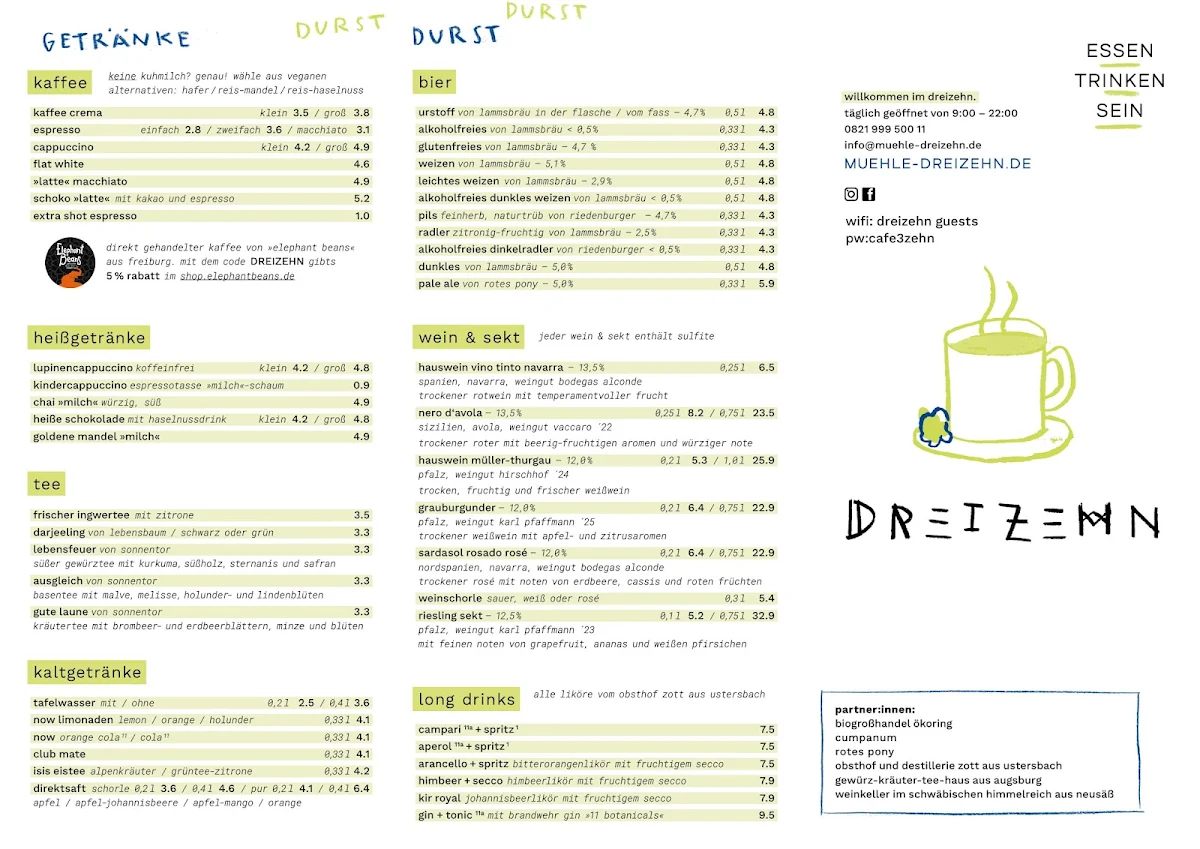 GETRÄNKE
DURST
kaffee
keine kuhmilch? genau! wähle aus veganen
alternativen: hafer / reis-mandel / reis-haselnuss
kaffee crema klein 3.5 / groß 3.8
espresso einfach 2.8 / zweifach 3.6 / macchiato 3.1
cappuccino klein 4.2 / groß 4.9
flat white 4.6
»latte« macchiato 4.9
schoko »latte« mit kakao und espresso 5.2
extra shot espresso 1.0
Elephant
Beans
direkt gehandelter kaffee von »elephant beans«
aus freiburg. mit dem code DREIZEHN gibts
5 % rabatt im shop.elephantbeans.de
heißgetränke
lupinencappuccino koffeinfrei klein 4.2 / groß 4.8
kindercappuccino espressotasse »milch«-schaum 0.9
chai »milch« würzig, süß 4.9
heiße schokolade mit haselnussdrink klein 4.2 / groß 4.8
goldene mandel »milch« 4.9
tee
frischer ingwertee mit zitrone 3.5
darjeeling von lebensbaum / schwarz oder grün 3.3
lebensfeuer von sonnentor 3.3
süßer gewürztee mit kurkuma, süßholz, sternanis und safran
ausgleich von sonnentor 3.3
basentee mit malve, melisse, holunder- und lindenblüten
gute laune von sonnentor 3.3
kräutertee mit brombeer- und erdbeerblättern, minze und blüten
kaltgetränke
tafelwasser mit / ohne 0,2l 2.5 / 0,4l 3.6
now limonaden lemon / orange / holunder 0,33l 4.1
now orange cola¹¹ / cola¹¹ 0,33l 4.1
club mate 0,33l 4.1
isis eistee alpenkräuter / grüntee-zitrone 0,33l 4.2
direktsaft schorle 0,2l 3.6 / 0,4l 4.6 / pur 0,2l 4.1 / 0,4l 6.4
apfel / apfel-johannisbeere / apfel-mango / orange
DURST
DURST
bier
urstoff von lammsbräu in der flasche / vom fass – 4,7% 0,5l 4.8
alkoholfreies von lammsbräu < 0,5% 0,33l 4.3
glutenfreies von lammsbräu – 4,7 % 0,33l 4.3
weizen von lammsbräu – 5,1% 0,5l 4.8
leichtes weizen von lammsbräu – 2,9% 0,5l 4.8
alkoholfreies dunkles weizen von lammsbräu < 0,5% 0,5l 4.8
pils feinherb, naturtrüb von riedenburger – 4,7% 0,33l 4.3
radler zitronig-fruchtig von lammsbräu – 2,5% 0,33l 4.3
alkoholfreies dinkelradler von riedenburger < 0,5% 0,33l 4.3
dunkles von lammsbräu – 5,0% 0,5l 4.8
pale ale von rotes pony – 5,0% 0,33l 5.9
wein & sekt jeder wein & sekt enthält sulfite
hauswein vino tinto navarra – 13,5% 0,25l 6.5
spanien, navarra, weingut bodegas alconde
trockener rotwein mit temperamentvoller frucht
nero d'avola – 13,5% 0,25l 8.2 / 0,75l 23.5
sizilien, avola, weingut vaccaro ´22
trockener roter mit beerig-fruchtigen aromen und würziger note
hauswein müller-thurgau – 12,0% 0,2l 5.3 / 1,0l 25.9
pfalz, weingut hirschhof ´24
trocken, fruchtig und frischer weißwein
grauburgunder – 12,0% 0,2l 6.4 / 0,75l 22.9
pfalz, weingut karl pfaffmann ´25
trockener weißwein mit apfel- und zitrusaromen
sardasol rosado rosé – 12,0% 0,2l 6.4 / 0,75l 22.9
nordspanien, navarra, weingut bodegas alconde
trockener rosé mit noten von erdbeere, cassis und roten früchten
weinschorle sauer, weiß oder rosé 0,3l 5.4
riesling sekt – 12,5% 0,1l 5.2 / 0,75l 32.9
pfalz, weingut karl pfaffmann ´23
mit feinen noten von grapefruit, ananas und weißen pfirsichen
long drinks alle liköre vom obsthof zott aus ustersbach
campari ¹¹ᵃ + spritz¹ 7.5
aperol ¹¹ᵃ + spritz¹ 7.5
arancello + spritz bitterorangenlikör mit fruchtigem secco 7.5
himbeer + secco himbeerlikör mit fruchtigem secco 7.9
kir royal johannisbeerlikör mit fruchtigem secco 7.9
gin + tonic ¹¹ᵃ mit brandwehr gin »11 botanicals« 9.5
ESSEN
TRINKEN
SEIN
willkommen im dreizehn.
täglich geöffnet von 9:00 – 22:00
0821 999 500 11
info@muehle-dreizehn.de
MUEHLE-DREIZEHN.DE
wifi: dreizehn guests
pw:cafe3zehn
DREIZEHN
partner:innen:
biogroßhandel ökoring
cumpanum
rotes pony
obsthof und destillerie zott aus ustersbach
gewürz-kräuter-tee-haus aus augsburg
weinkeller im schwäbischen himmelreich aus neusäß